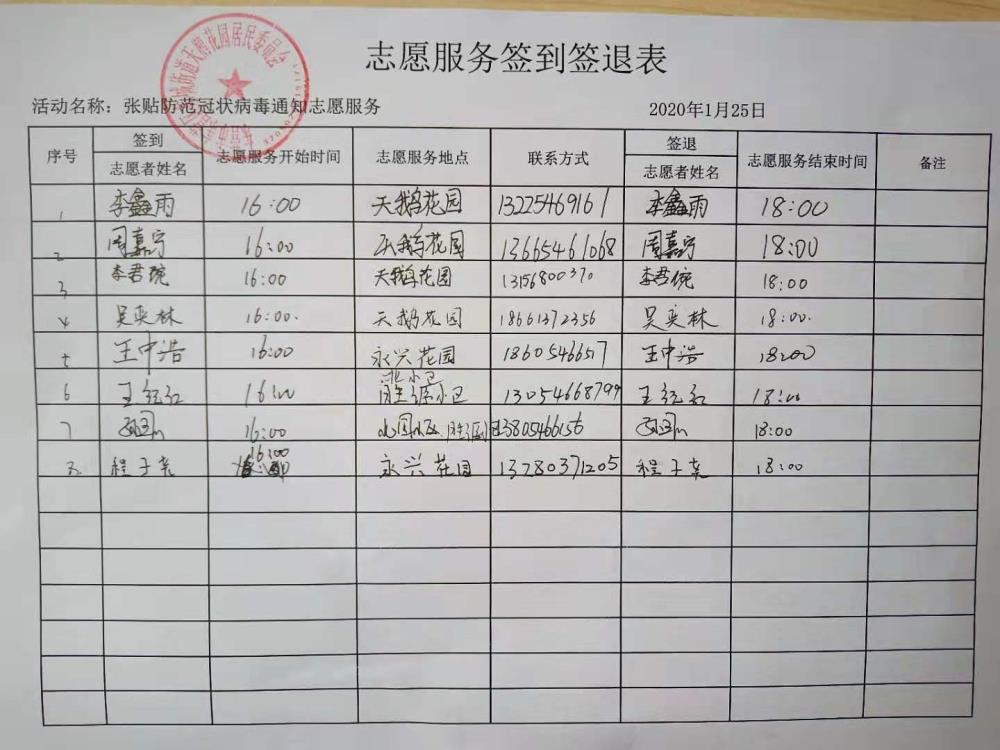 志愿服务签到签退表
天鹅花园居民委员会
活动名称：张贴防范冠状病毒通知志愿服务 2020年1月25日
序号 签到 志愿服务开始时间 志愿服务地点 联系方式 签退 志愿服务结束时间 备注
志愿者姓名 志愿者姓名
1 李鑫雨 16:00 天鹅花园 13225469161 李鑫雨 18:00
2 周嘉宁 16:00 天鹅花园 13665461068 周嘉宁 18:00
3 李君婉 16:00 天鹅花园 13156800370 李君婉 18:00
4 吴奕林 16:00. 天鹅花园 18661372356 吴奕林 18:00.
王中浩 16:00 永兴花园 1860546657 王中浩 18:00
6 王红红 16:00 胜源小区 13054668799 王红红 18:00
7 16:00 13805466156 18:00
16:00
程子亲 永兴花园 13780371205 程子亲 18:00